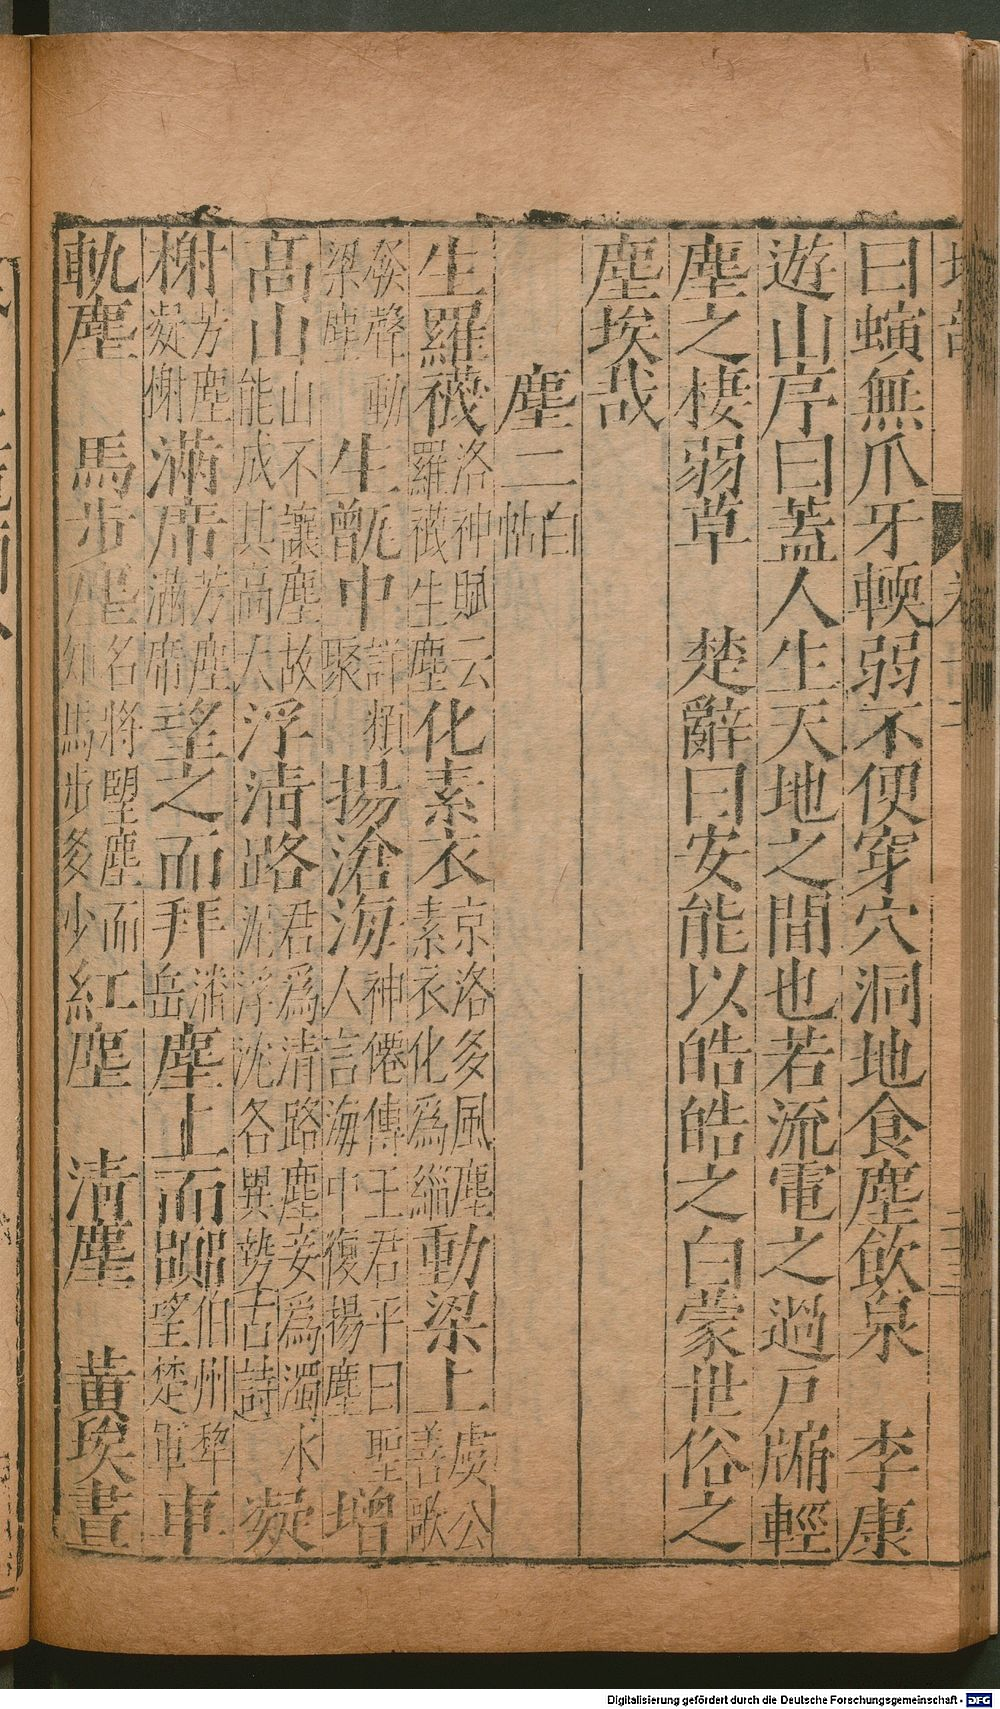 曰螾無爪牙輭弱不便穿穴洞地食塵飲泉　李康
遊山序曰蓋人生天地之間也若流電之過戸牖輕
塵之棲弱草　楚辭曰安能以皓皓之白蒙世俗之
塵埃哉
塵二白帖
生羅襪洛神賦云羅襪生塵化素衣京洛多風塵素衣化爲緇動梁上虞公善歌
發聲動梁塵　生甑中詳類聚　揚滄海神僊傳王君平曰聖人言海中復揚塵　增
高山山不讓塵故能成其高大浮清路君爲清路塵妾爲濁水泥浮沈各異勢古詩　凝
榭芳塵凝榭滿席芳塵滿席望之而拜潘岳塵上而嚻伯州犂望楚軍車
軌塵　馬步塵名將朢塵而知馬步多少紅塵　清塵　黃埃晝
Digitalisierung gefördert durch die Deutsche Forschungsgemeinschaft - DFG